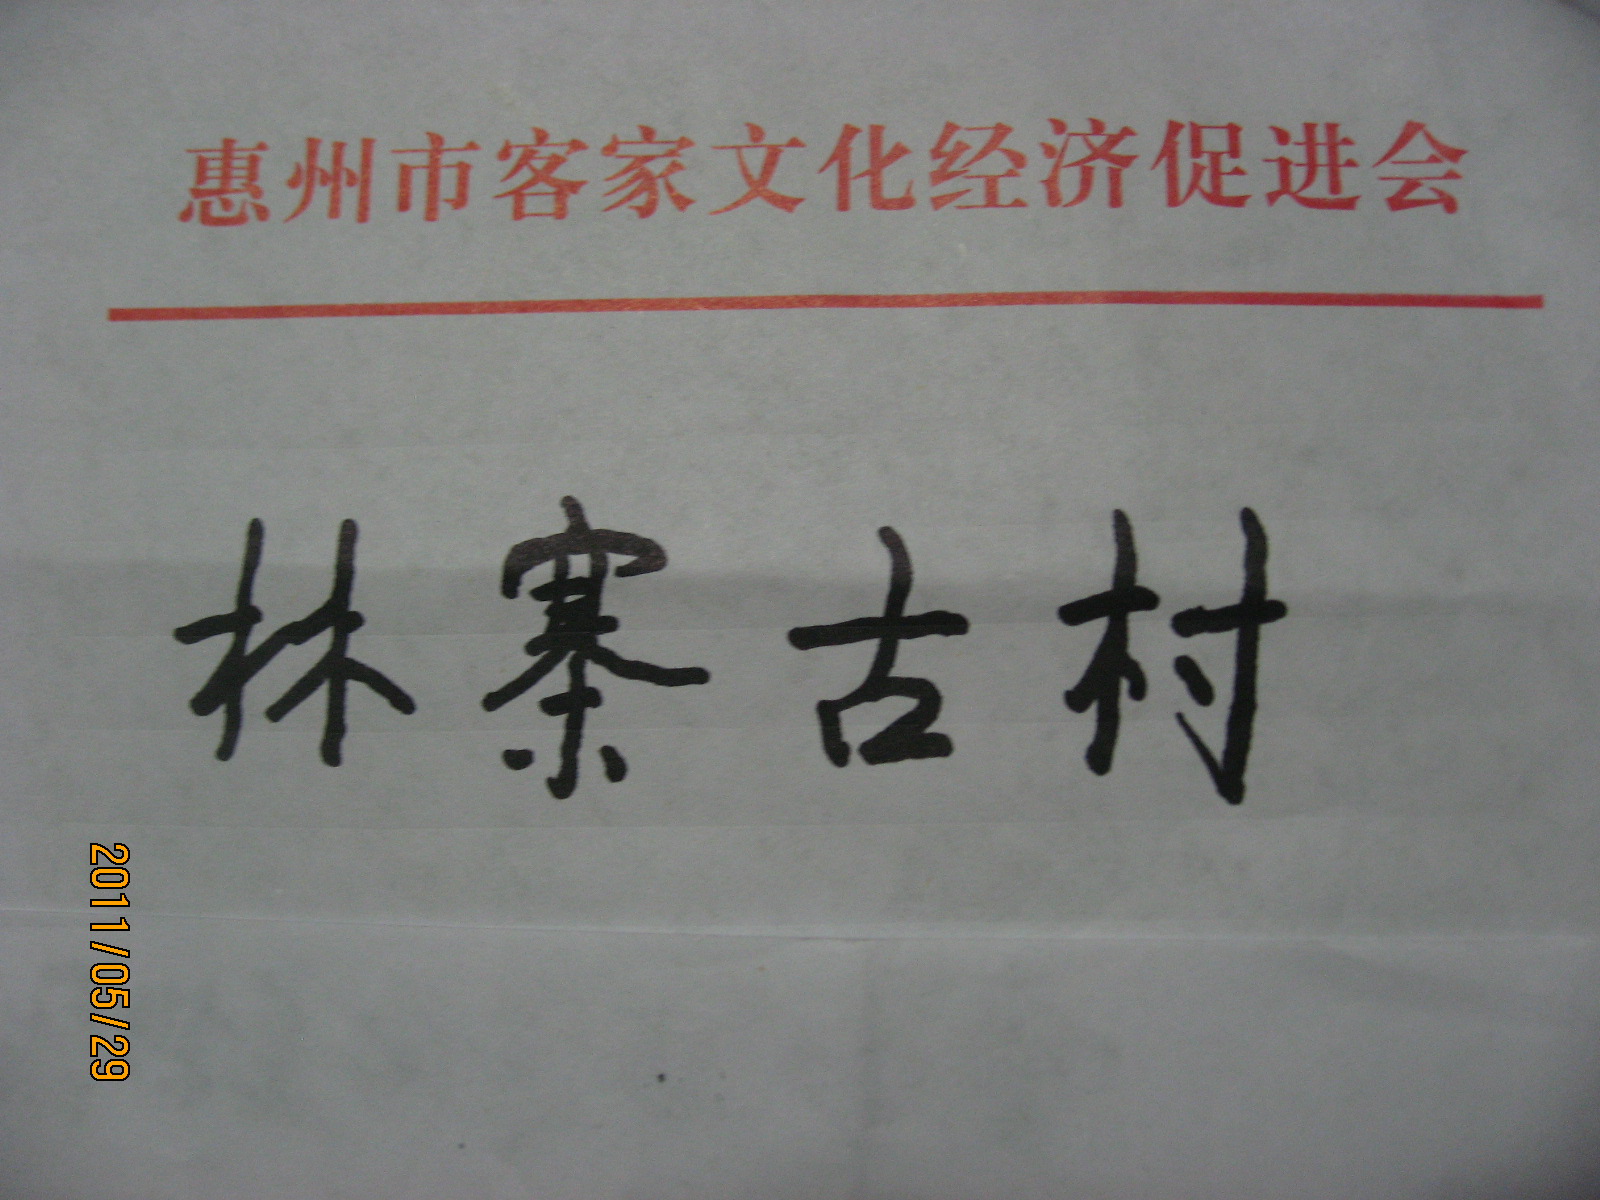 惠州市客家文化经济促进会
林寨古村
2011/05/29